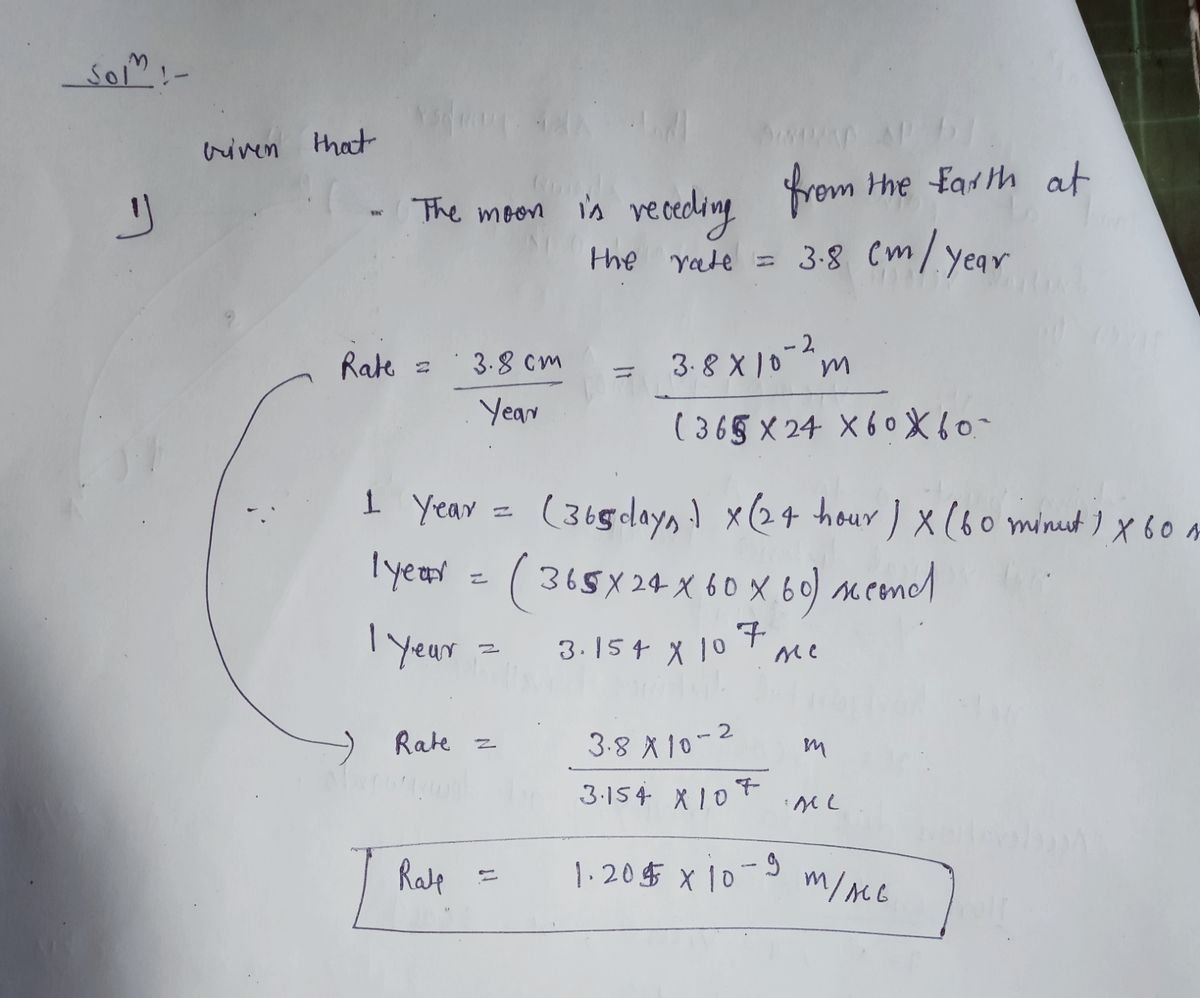 Solⁿ :-
Given that
1) - The moon is receding from the Earth at
the rate = 3.8 cm/year
Rate = 3.8 cm / Year = 3.8 X 10⁻² m / (365 X 24 X 60 X 60
∵ 1 Year = (365 days) x (24 hour) X (60 minut) X 60 s
1 year = (365 X 24 X 60 X 60) second
1 Year = 3.154 X 10⁷ sec
Rate = 3.8 X 10⁻² m / 3.154 X 10⁷ sec
Rate = 1.205 x 10⁻⁹ m/sec